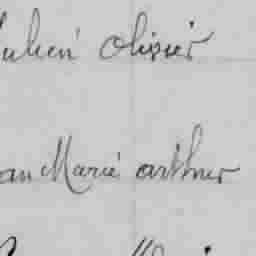 ulien olivier
an Marie arthur